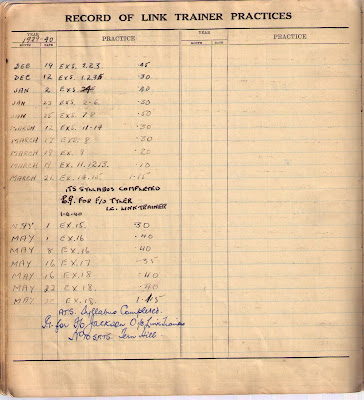 RECORD OF LINK TRAINER PRACTICES
YEAR 1939-40 PRACTICE YEAR PRACTICE
MONTH DATE MONTH DATE
DEC 14 EXS. 1.2.3 .45
DEC 12 EXS. 1.2.3 .30
JAN 2 EXS. .40
JAN EXS 2-6 .30
JAN EXS .50
MARCH 12 EXS. 11-14 .30
MARCH EXS. 8 .30
MARCH 18 EX. 8 .20
MARCH 19 EX. 11.12.13. .10
MARCH 21 EX. 14.15 1.15
ITS SYLLABUS COMPLETED
FOR F/O TYLER
I.C. LINK-TRAINER
1-4-40
MAY 1 EX.15. .30
MAY 1 EX.16 .40
MAY 8 EX.16 .40
MAY 16 EX.17 .35
MAY 16 EX.18 .40
MAY 22 EX.18. .40
MAY EX.18. 1.45
A.T.S. Syllabus Completed.
for F/O Jackson O i/c Link Trainer
No 10 S.F.T.S. Tern Hill.